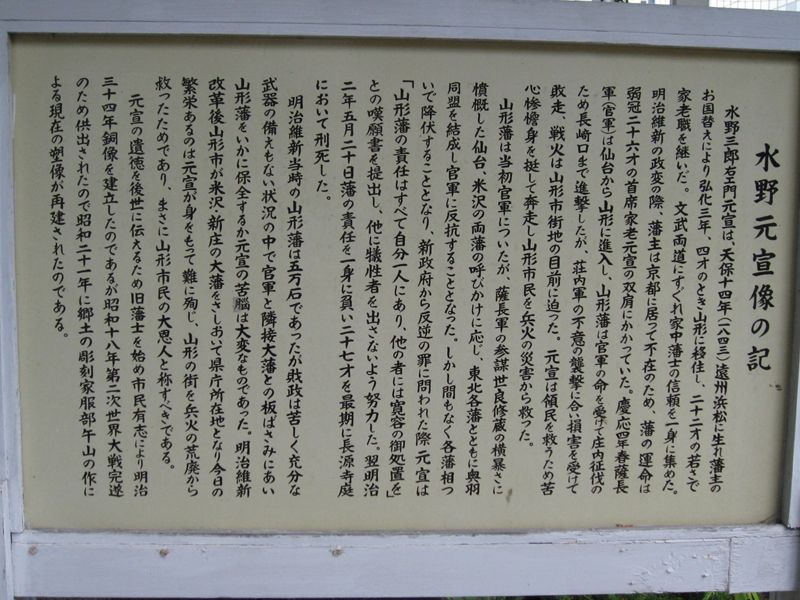 水野元宣像の記
水野三郎右エ門元宣は、天保十四年(一八四三)遠州浜松に生れ藩主の
お国替えにより弘化三年、四才のとき山形に移住し、二十二才の若さで
家老職を継いだ。文武両道にすぐれ家中藩士の信頼を一身に集めた。
明治維新の政変の際、藩主は京都に居って不在のため、藩の運命は
弱冠二十六才の首席家老元宣の双肩にかかっていた。慶応四年春薩長
軍(官軍)は仙台から山形に進入し、山形藩は官軍の命を受けて庄内征伐の
ため長崎口まで進撃したが、荘内軍の不意の襲撃に合い損害を受けて
敗走、戦火は山形市街地の目前に迫った。元宣は領民を救うため苦
心惨憺身を挺して奔走し山形市民を兵火の災害から救った。
山形藩は当初官軍についたが、薩長軍の参謀世良修蔵の横暴さに
憤慨した仙台、米沢の両藩の呼びかけに応じ、東北各藩とともに奥羽
同盟を結成し官軍に反抗することとなった。しかし間もなく各藩相つ
いで降伏することとなり、新政府から反逆の罪に問われた際、元宣は
「山形藩の責任はすべて自分一人にあり、他の者には寛容の御処置を」
との嘆願書を提出し、他に犠牲者を出さないよう努力した。翌明治
二年五月二十日藩の責任を一身に負い二十七才を最期に長源寺庭
において刑死した。
明治維新当時の山形藩は五万石であったが財政は苦しく充分な
武器の備えもない状況の中で官軍と隣接大藩との板ばさみにあい
山形藩をいかに保全するか元宣の苦脳は大変なものであった。明治維新
改革後山形市が米沢、新庄の大藩をさしおいて県庁所在地となり今日の
繁栄あるのは元宣が身をもって難に殉じ、山形の街を兵火の荒廃から
救ったためであり、まさに山形市民の大恩人と称すべきである。
元宣の遺徳を後世に伝えるため旧藩士を始め市民有志により明治
三十四年銅像を建立したのであるが昭和十八年第二次世界大戦完遂
のため供出されたので昭和三十一年に郷土の彫刻家服部午山の作に
よる現在の塑像が再建されたのである。